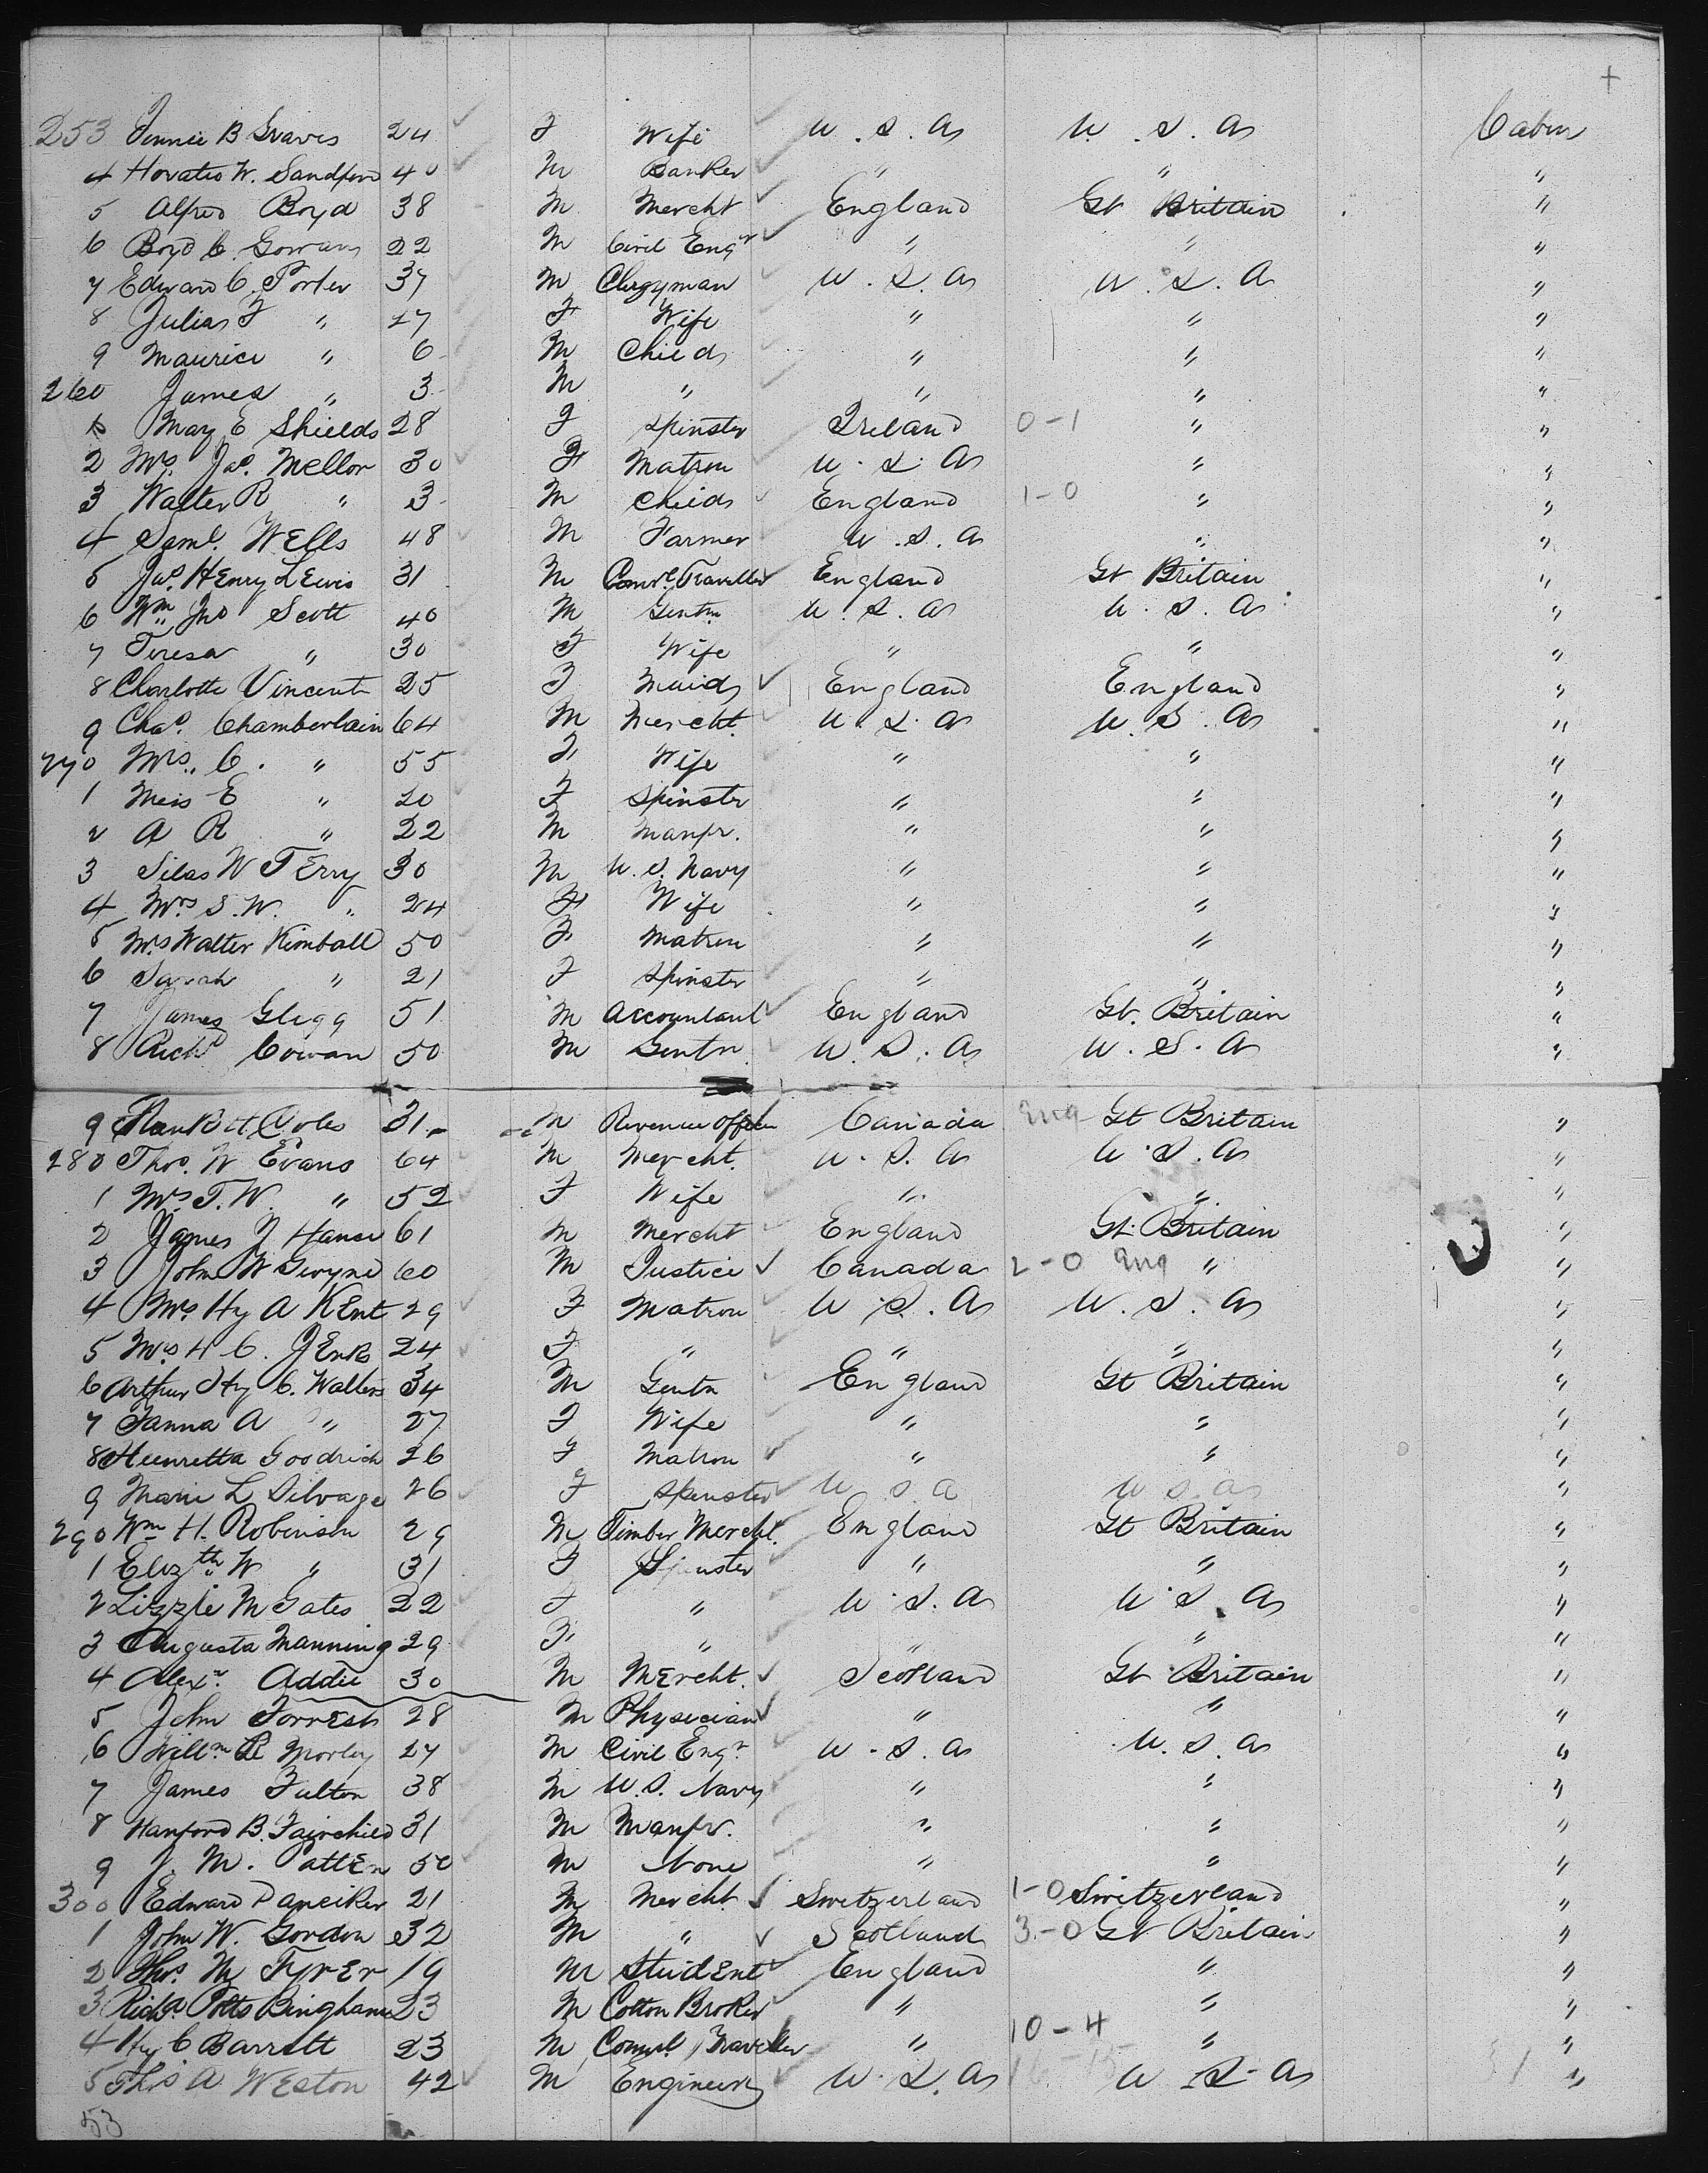 +
253 Jennie B Graves 24 F Wife U.S.A U.S.A Cabin
4 Horatio W. Sandford 40 M Banker " " "
5 Alfred Boyd 38 M Mercht England Gt Britain "
6 Boyd C. Gowans 22 M Civil Engr " " "
7 Edward C. Porter 37 M Clergyman U.S.A U.S.A "
8 Julia F " 27 F Wife " " "
9 Maurice " 6 M Child " " "
260 James " 3 M " " " "
1 Mary E Shields 28 F Spinster Ireland 0-1 " "
2 Mrs Jas. Mellor 30 F Matron U.S.A " "
3 Walter R " 3 M Child England 1-0 " "
4 Saml. Wells 48 M Farmer U.S.A " "
5 Jas. Henry Lewis 31 M Comrl. Traveller England Gt Britain "
6 Wm Jno Scott 40 M Gentn U.S.A U.S.A "
7 Teresa " 30 F Wife " " "
8 Charlotte Vincent 25 F Maid England England "
9 Chas. Chamberlain 64 M Mercht. U.S.A U.S.A "
270 Mrs. C. " 55 F Wife " " "
1 Miss E " 20 F Spinster " " "
2 A R " 22 M Manfr. " " "
3 Silas W Terry 30 M U.S. Navy " " "
4 Mrs S.W. " 24 F Wife " " "
5 Mrs Walter Kimball 50 F Matron " " "
6 Sarah " 21 F Spinster " " "
7 James Glegg 51 M Accountant England Gt. Britain "
8 Richd Cowan 50 M Gentn U.S.A U.S.A "
9 Coles 31 M Revenue Officer Canada Eng Gt Britain "
280 Thos. W Evans 64 M Mercht. U.S.A U.S.A "
1 Mrs T.W. " 52 F Wife " " "
2 James 61 M Mercht England Gt. Britain "
3 John W Gwyne 60 M Justice Canada 2-0 Eng " "
4 Mrs Hy A Kent 29 F Matron U.S.A U.S.A "
5 Mrs H C. Jenks 24 F " " " "
6 Arthur Hy C. Walters 34 M Gentn England Gt Britain "
7 A " 27 F Wife " " "
8 Henrietta Goodrich 26 F Matron " " "
9 Marie L Selvage 26 F Spinster U S A U S A "
290 Wm H. Robinson 29 M Timber Mercht. England Gt Britain "
1 Elizth W " 31 F Spinster " " "
2 Lizzie M Gates 22 F " U.S.A U.S.A "
3 Augusta Manning 29 F " " " "
4 Alexr. Addie 30 M Mercht. Scotland Gt Britain "
5 John Forrest 28 M Physician " " "
6 Willm R Morley 27 M Civil Engr. U.S.A U.S.A "
7 James Fulton 38 M U.S. Navy " " "
8 Hanford B. Fairchild 31 M Manfr. " " "
9 J. M. Patten 50 M None " " "
300 Edward 21 M Mercht. Switzerland 1-0 Switzerland "
1 John W. Gordon 32 M " Scotland 3-0 Gt Britain "
2 Thos. M Tyrer 19 M Student England " "
3 Richd. Potts Bingham 23 M Cotton Broker " " "
4 Hy C Barrett 23 M Comrl Traveller " 10-4 " "
5 Thos A Weston 42 M Engineer U.S.A U.S.A "
53